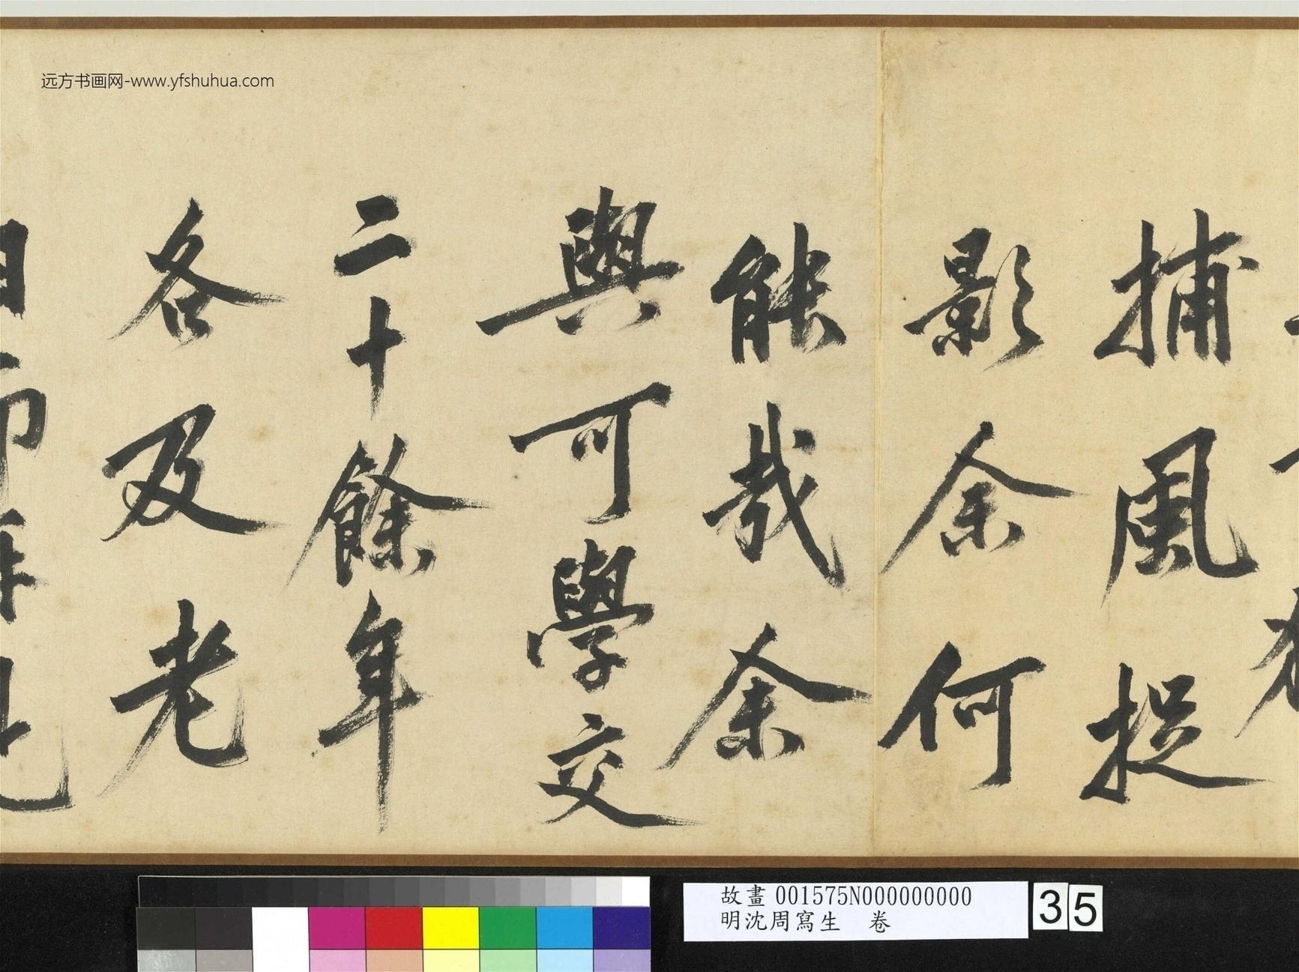 远方书画网-www.yfshuhua.com
捕風捉
影余何
能哉余
與可學交
二十餘年
各及老
故畫 001575N000000000
明沈周寫生 卷
35